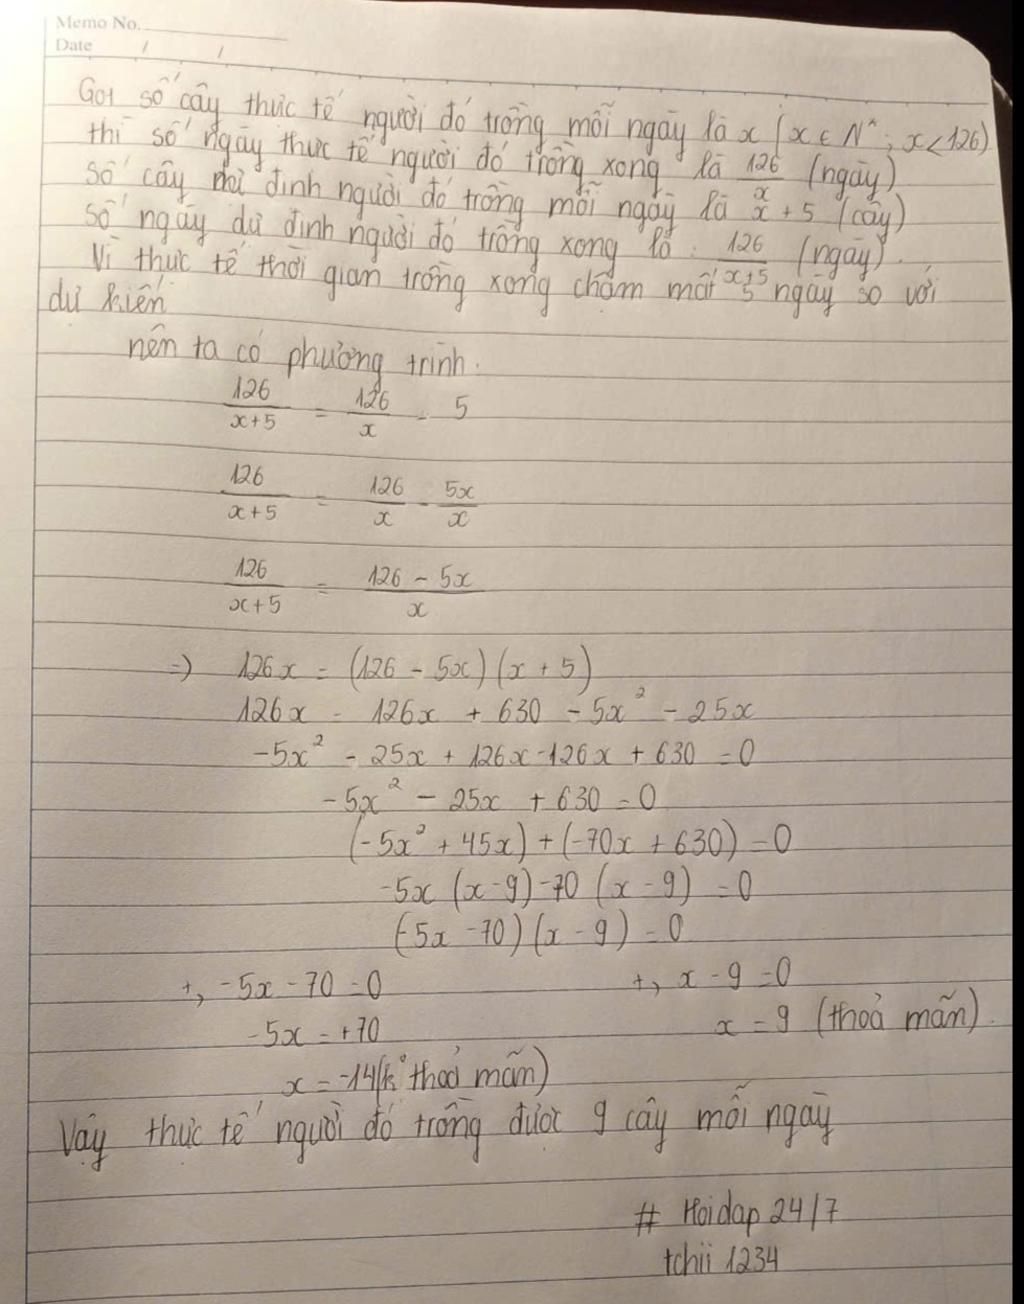 Memo No.
Date / /
Gọi số cây thực tế người đó trồng mỗi ngày là x (x ∈ N*; x < 126)
thì số ngày thực tế người đó trồng xong là 126/x (ngày)
Số cây dự định người đó trồng mỗi ngày là x + 5 (cây)
Số ngày dự định người đó trồng xong là: 126/(x+5) (ngày).
Vì thực tế thời gian trồng xong chậm mất 5 ngày so với
dự kiến
nên ta có phương trình:
126/(x+5) = 126/x - 5
126/(x+5) = 126/x - 5x/x
126/(x+5) = (126 - 5x)/x
=> 126x = (126 - 5x)(x + 5)
126x = 126x + 630 - 5x² - 25x
-5x² - 25x + 126x - 126x + 630 = 0
-5x² - 25x + 630 = 0
(-5x² + 45x) + (-70x + 630) = 0
-5x (x - 9) - 70 (x - 9) = 0
(-5x - 70)(x - 9) = 0
+, -5x - 70 = 0 +, x - 9 = 0
-5x = +70 x = 9 (thoả mãn).
x = -14 (k° thoả mãn)
Vậy thực tế người đó trồng được 9 cây mỗi ngày
# Hoidap 24/7
tchii 1234